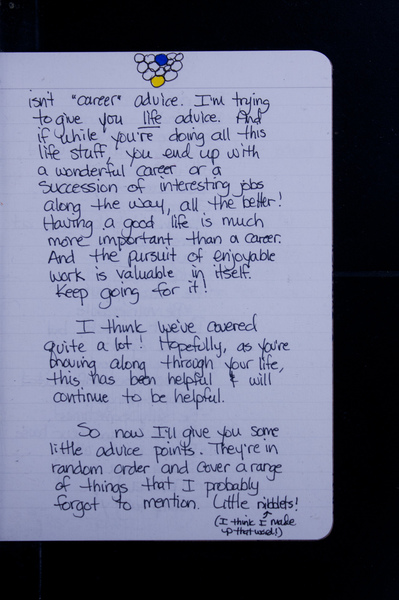 isn't "career" advice. I'm trying
to give you life advice. And
if while you're doing all this
life stuff, you end up with
a wonderful career or a
succession of interesting jobs
along the way, all the better!
Having a good life is much
more important than a career.
And the pursuit of enjoyable
work is valuable in itself.
Keep going for it!
I think we've covered
quite a lot! Hopefully, as you're
moving along through your life,
this has been helpful & will
continue to be helpful.
So now I'll give you some
little advice points. They're in
random order and cover a range
of things that I probably
forgot to mention. Little niddlets!
(I think I make
up that word!)